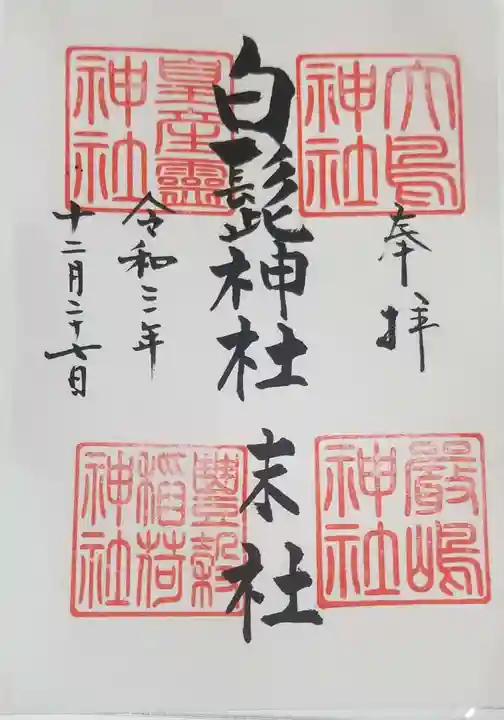 奉拝
大鳥
神社
嚴嶋
神社
白髭神社 末社
皇産靈
神社
豐穀
稲荷
神社
令和三年
十二月二十七日